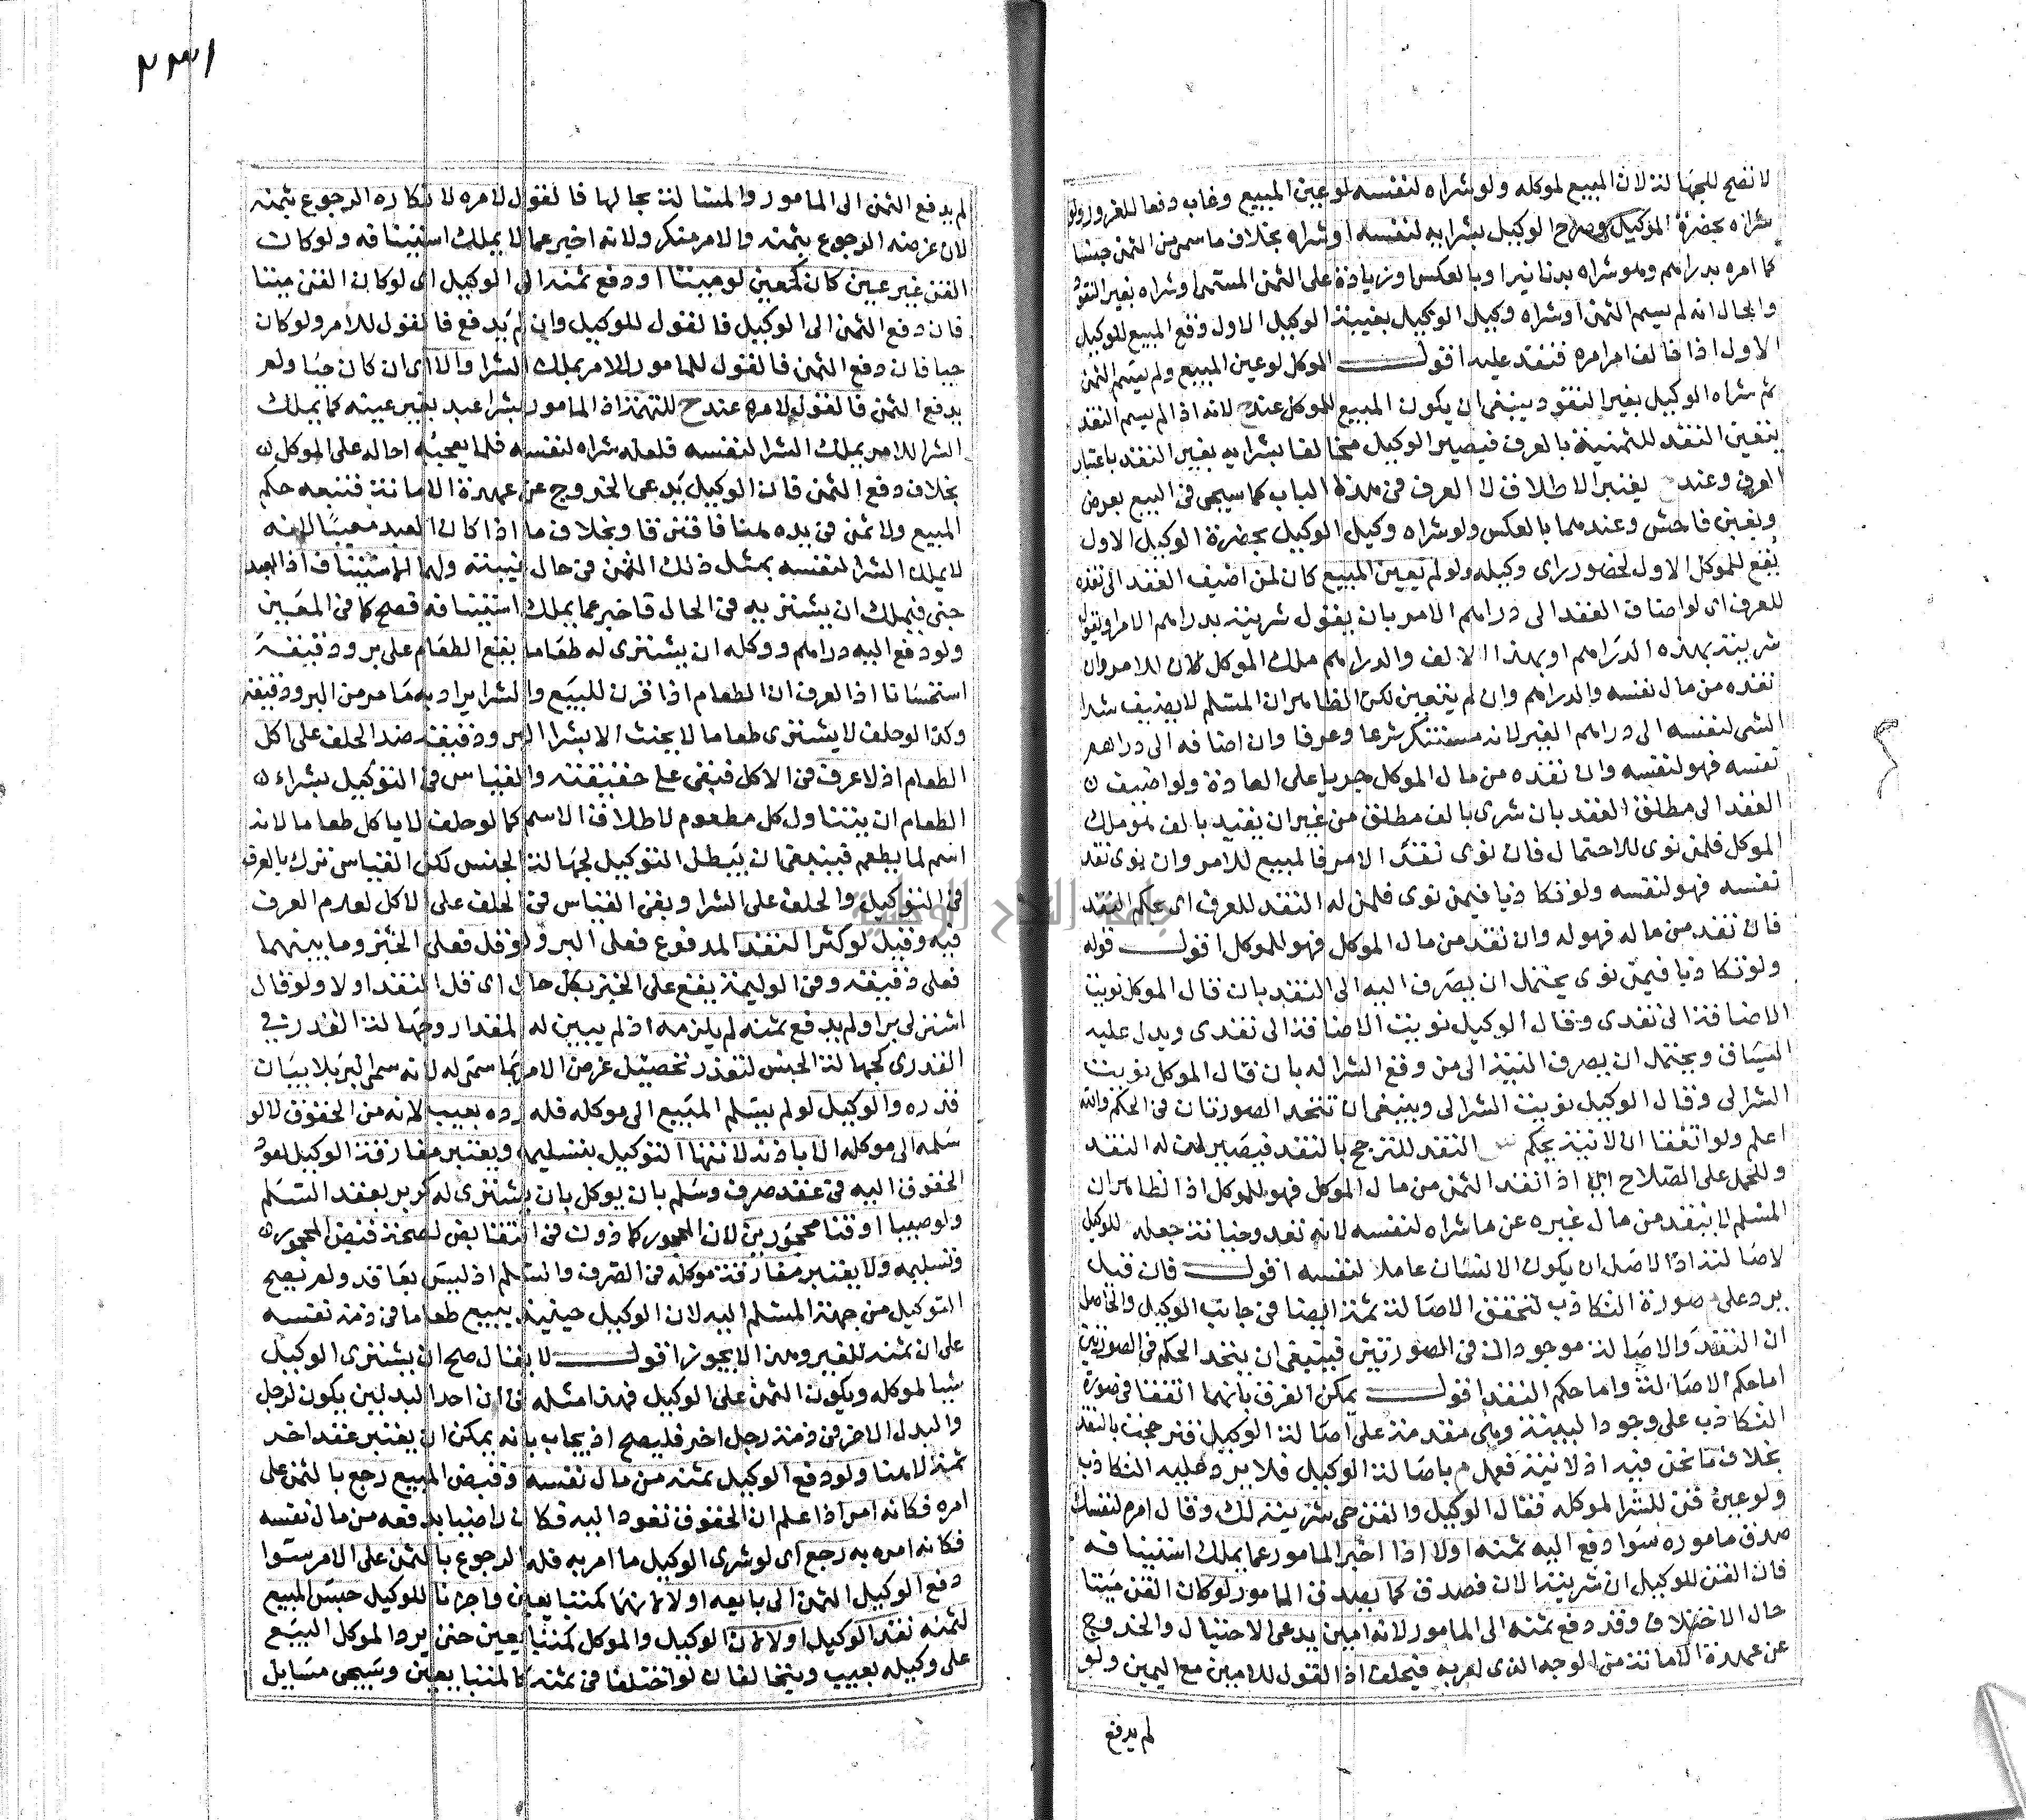 لا تصح للجهالة لان المبيع لموكله ولو شراه لنفسه لو عين المبيع وغاب دفعا للغرور ولو
شراه بحضرة الموكيل وصرح الوكيل بشرايه لنفسه او شراه بخلاف ما سمى من الثمن جنسا
كما امره بدراهم وهو شراه بدنانيرا وبالعكس او زيادة على الثمن المسمى او شراه بغير النقود
والحال انه لم يسم الثمن او شراه وكيل الوكيل بغيبة الوكيل الاول وقع المبيع للوكيل
الاول اذا خالف امر امره فنفذ عليه اقول الموكل لو عين المبيع ولم يسم الثمن
ثم شراه الوكيل بغير النقود ينبغى ان يكون المبيع للموكل عند ح لانه اذا لم يسم النقد
يتعين النقد للثمنية بالعرف فيصير الوكيل مخالفا بشرايه بغير النقد باعتبار
العرف وعند ح يعتبر الاطلاق لا العرف فى هذه الباب كما سيجى فى البيع بعرض
وبغبن فاحش وعندهما بالعكس ولو شراه وكيل الوكيل بحضرة الوكيل الاول
يقع للموكل الاول لحضور راى وكيله ولو لم يعين المبيع كان لمن اضيف العقد الى نقده
للعرف اى لو اضاف العقد الى دراهم الامر بان يقول شريته بدراهم الامر او يقول
شريته بهذه الدراهم او بهذا الالف والدراهم ملك الموكل كان للامر وان
نقده من مال نفسه والدراهم وان لم يتعين لكن الظاهر ان المسلم لا يضيف شرا
الشى لنفسه الى دراهم الغير لانه مستنكر شرعا وعرفا وان اضافه الى دراهم
نفسه فهو لنفسه وان نقده من مال الموكل جريا على العادة ولو اضيف
العقد الى مطلق العقد بان شرى بالف مطلق من غير ان يقيد بالف هو ملك
الموكل فلمن نوى للاحتمال فان نوى نقد الامر فالمبيع للامر وان نوى نقد
نفسه فهو لنفسه ولو تكاذبا فيمن نوى فلمن له النقد للعرف اى يحكم النقد
فان نقد من ماله فهو له وان نقد من مال الموكل فهو للموكل اقول قوله
ولو تكاذبا فيمن نوى يحتمل ان يصرف اليه الى النقد بان قال الموكل نويت
الاضافة الى نقدى وقال الوكيل نويت الاضافة الى نقدى ويدل عليه
السياق ويحتمل ان يصرف النية الى من وقع الشرا له بان قال الموكل نويت
الشرا لى وقال الوكيل نويت الشرا لى وينبغى ان تتحد الصورتان فى الحكم والله
اعلم ولو اتفقا ان لا نية يحكم س النقد للترجح بالنقد فيصير لمن له النقد
وللحمل على الصلاح اذا نقد الثمن من مال الموكل فهو للموكل اذ الظاهر ان
المسلم لا ينقد من مال غيره عن ما شراه لنفسه لانه تعد وخيانة جعله للوكيل
لاصالته اذ الاصل ان يكون الانسان عاملا لنفسه اقول فان قيل
يرد على صورة التكاذب لتحقق الاصالة ثمة ايضا فى جانب الوكيل والحاصل
ان النقد والاصالة موجودان فى الصورتين فينبغى ان يتحد الحكم فى الصورتين
اما حكم الاصالة واما حكم النقد اقول يمكن الفرق بانهما اتفقا فى صورة
التكاذب على وجود البينة وهى مقدمة على اصالة الوكيل فترجحت بالنقد
بخلاف ما نحن فيه اذ لا نية فعمل م باصالة الوكيل فلا يرد عليه التكاذب
ولو عين قن للشرا لموكله فقال الوكيل والقن حى شريته لك وقال امره لنفسك
صدق ماموره سوا دفع اليه ثمنه اولا اذا اخبر المامور عما يملك استينافه
فان القن للوكيل ان شريته الان فصدق كما يصدق المامور لو كان القن ميتا
حال الاختلاف وقد دفع ثمنه الى المامور لانه امين يدعى الاحتيال والخروج
عن عهدة الامانة من الوجه الذى امر به فيحلف اذ القول للامين مع اليمين ولو
لم يدفع
٢٣١
لم يدفع الثمن الى المامور والمسالة بحالها فالقول لامره لانكاره الرجوع بثمنه
لان غرضه الرجوع بثمنه والامر منكر ولانه اخبر عما لا يملك استينافه ولو كان
القن غير عين كان كمعين لو ميتا او دفع ثمنه الى الوكيل اى لو كان القن ميتا
فان دفع الثمن الى الوكيل فالقول للوكيل وان لم يدفع فالقول للامر ولو كان
حيا فان دفع الثمن فالقول للمامور لان الامر يملك الشرا والا اى ان كان حيا ولم
يدفع الثمن فالقول لامره عند ح للتهمة اذ المامور بشرا عبد بغير عينه كما يملك
الشرا للامر يملك الشرا لنفسه فلعله شراه لنفسه فلما يعجبه احاله على الموكل
بخلاف دفع الثمن فان الوكيل يدعى الخروج عن عهدة الامانة فيتبعه حكم
المبيع ولا ثمن فى يده هنا فافترقا وبخلاف ما اذا كان العبد معينا لانه
لا يملك الشرا لنفسه بمثل ذلك الثمن فى حال غيبته ولهما الاستيناف اذ العبد
حى فيملك ان يشتريه فى الحال فاخبر عما يملك استينافه فصح كما فى المعين
ولو دفع اليه دراهم ووكله ان يشترى له طعاما يقع الطعام على بر ودقيقه
استحسانا اذ العرف ان الطعام اذا قرن للبيع والشرا يراد به ما مر من البر ودقيقه
وكذا لو حلف لا يشترى طعاما لا يحنث الا بشرا البر ودقيقه ضد الحلف على اكل
الطعام اذ لا عرف فى الاكل فبقى على حقيقته والقياس فى التوكيل بشراء
الطعام ان يتناول كل مطعوم لاطلاق الاسم كما لو حلف لا ياكل طعاما لانه
اسم لما يطعم فينبغى ان يبطل التوكيل لجهالة الجنس لكن القياس ترك بالعرف
فى التوكيل والحلف على الشرا وبقى القياس فى الحلف على الاكل لعدم العرف
فيه وقيل لو كثر النقد المدفوع فعلى البر ولو قل فعلى الخبز وما بينهما
فعلى دقيقه وفى الوليمة يقع على الخبز بكل حال اى قل النقد اولا ولو قال
اشتر لى برا ولم يدفع ثمنه لم يلزمه اذ لم يبين له المقدار وجهالة القدر فى
القدرى كجهالة الجنس لتعذر تحصيل غرض الامر بما سمى له لانه سمى البر بلا بيان
قدره والوكيل لو لم يسلم المبيع الى موكله فله رده بعيب لانه من الحقوق لا لو
سلمه الى موكله الا باذنه لانتهاء التوكيل بتسليمه ويعتبر مفارقة الوكيل لعود
الحقوق اليه فى عقد صرف وسلم بان يوكل بان يشترى له كر بر بعقد السلم
ولو صبيا او قنا محجورين لان المحجور كماذون فى التقابض لصحة قبض المحجور
وتسليمه ولا يعتبر مفارقة موكله فى الصرف والسلم اذ ليس بعاقد ولم يصح
التوكيل من جهة المسلم اليه لان الوكيل حينيذ يبيع طعاما فى ذمة نفسه
على ان ثمنه للغير وهذا لا يجوز اقول لا يقال صح ان يشترى الوكيل
شيا لموكله ويكون الثمن على الوكيل فهذا مثله فى ان احد البدلين يكون لرجل
والبدل الاخر فى ذمة رجل اخر فليصح اذ يجاب بانه يمكن ان يعتبر عقد اخر
ثمة لا هنا ولو دفع الوكيل ثمنه من مال نفسه وقبض المبيع رجع بالثمن على
امره فكانه امره اذا علم ان الحقوق تعود اليه فكان راضيا بدفعه من مال نفسه
فكانه امره به رجع اى لو شرى الوكيل ما امر به فله الرجوع بالثمن على الامر سوا
دفع الوكيل الثمن الى بايعه اولا لانهما كمتبايعين واجزنا للوكيل حبس المبيع
لثمنه نقد الوكيل اولا لان الوكيل والموكل كمتبايعين حتى يرد الموكل البيع
على وكيله بعيب ويتحالفان لو اختلفا فى ثمنه كالمتبايعين وسيجى مسايل
جامعة النجاح الوطنية